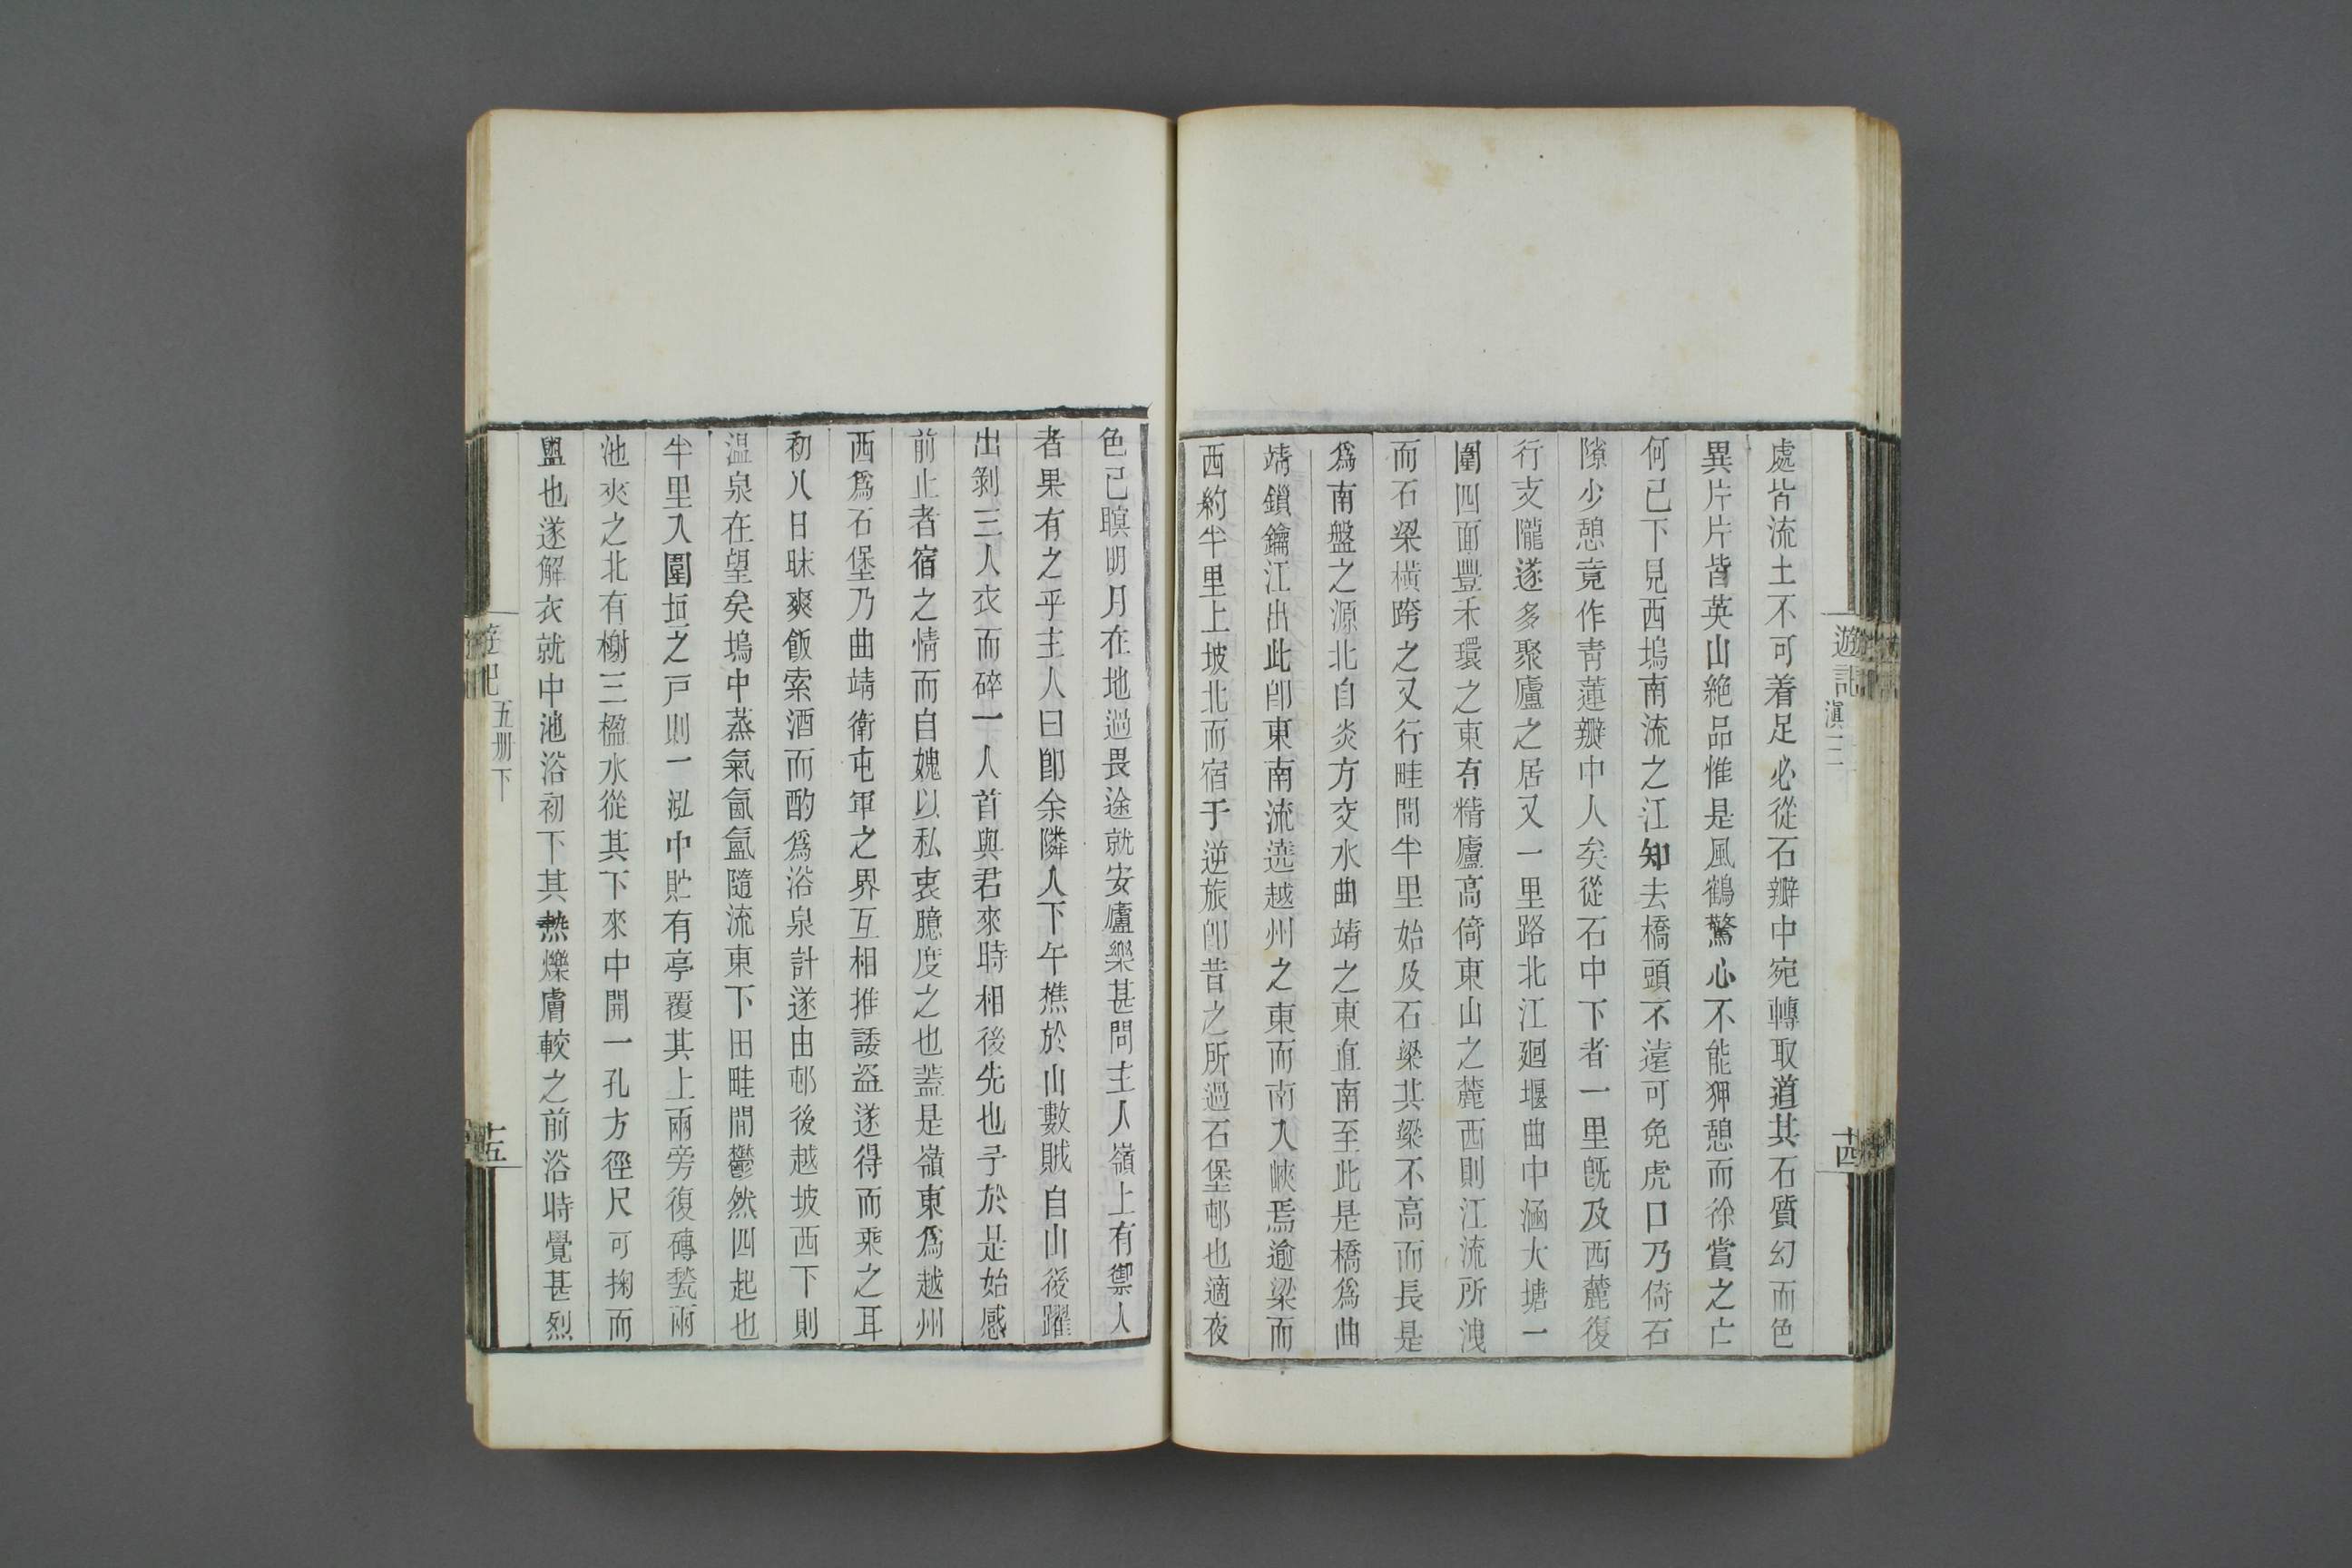 遊記 滇三 十四
處皆流土不可着足必從石瓣中宛轉取道其石質幻而色
異片片皆英山絕品惟是風鶴驚心不能狎憩而徐賞之亡
何已下見西塢南流之江知去橋頭不遠可免虎口乃倚石
隙少憩竟作靑蓮瓣中人矣從石中下者一里旣及西麓復
行支隴遂多聚廬之居又一里路北江廻堰曲中涵大塘一
圍四面豐禾環之東有精廬高倚東山之麓西則江流所洩
而石梁橫跨之又行畦間半里始及石梁其梁不高而長是
爲南盤之源北自炎方交水曲靖之東直南至此是橋爲曲
靖鎖鑰江出此卽東南流遶越州之東而南入峽焉逾梁而
西約半里上坡北而宿于逆旅卽昔之所過石堡邨也適夜
色已瞑明月在地過畏途就安廬樂甚問主人嶺上有禦人
者果有之乎主人曰卽余隣人下午樵於山數賊自山後躍
出剝三人衣而碎一人首與君來時相後先也予於是始感
前止者宿之情而自媿以私衷臆度之也蓋是嶺東爲越州
西爲石堡乃曲靖衛屯軍之界互相推諉盜遂得而乘之耳
初八日昧爽飯索酒而酌爲浴泉計遂由邨後越坡西下則
温泉在望矣塢中蒸氣氤氳隨流東下田畦間鬱然四起也
半里入圍垣之戸則一泓中貯有亭覆其上兩旁復磚甃兩
池夾之北有榭三楹水從其下來中開一孔方徑尺可掬而
盥也遂解衣就中池浴初下其熱爍膚較之前浴時覺甚烈
遊記 五册下 十五